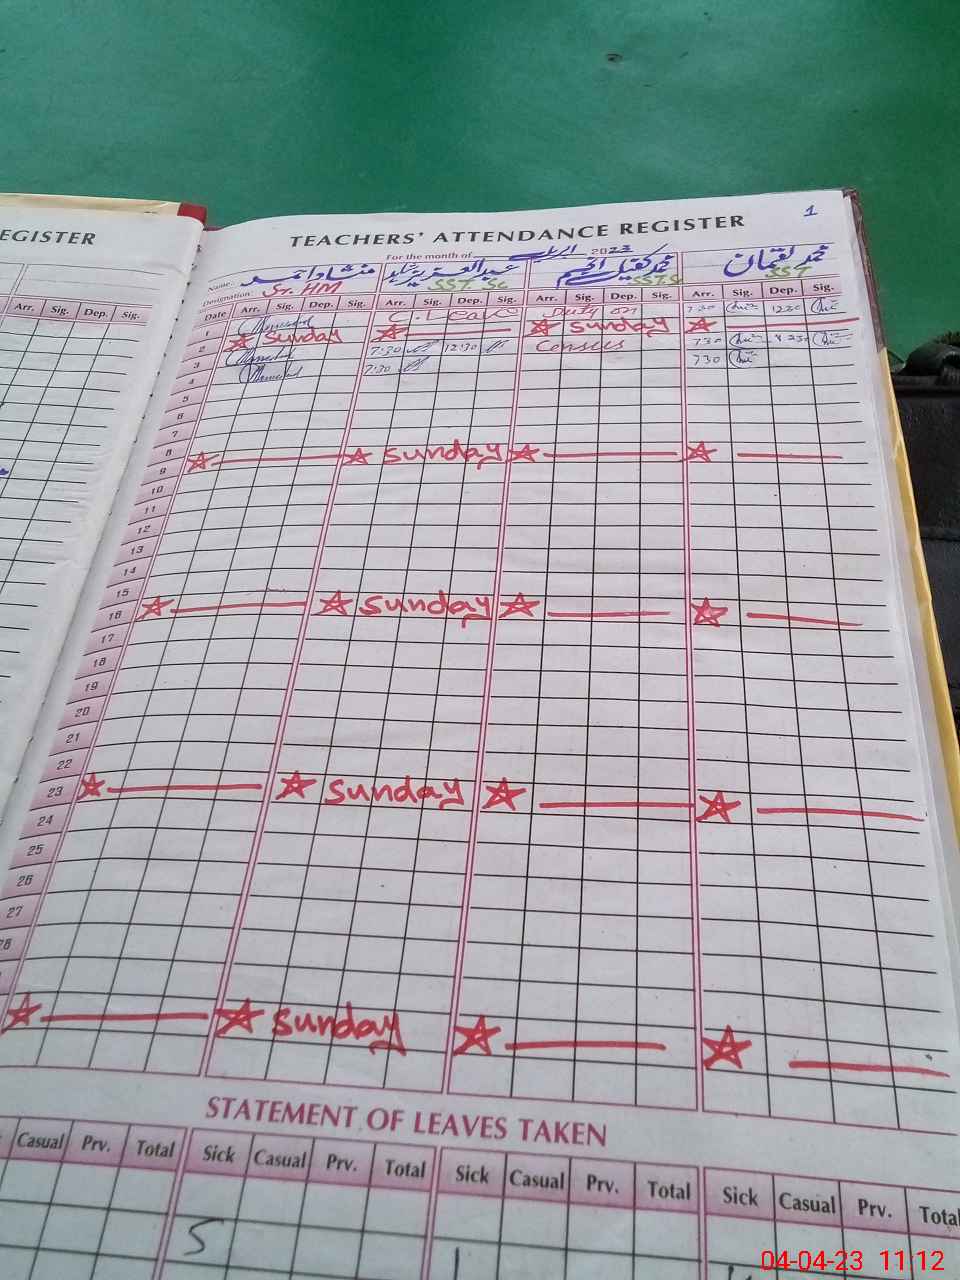 EGISTER
TEACHERS' ATTENDANCE REGISTER
1
For the month of اپریل 2023
Name. محمد لقمان
Designation. Sr. HM SST Sc SST.Sc SST
Arr. Sig. Dep. Sig.
Date Arr. Sig. Dep. Sig. Arr. Sig. Dep. Sig. Arr. Sig. Dep. Sig. Arr. Sig. Dep. Sig.
1 C. Leave Duty on 7 30 1230
2 Sunday Sunday
3 7:30 12:30 Census 730
4 7:30 730
5
6
7
8
9 Sunday
10
11
12
13
14
15
16 Sunday
17
18
19
20
21
22
23 Sunday
24
25
26
27
28
Sunday
STATEMENT OF LEAVES TAKEN
Casual Prv. Total Sick Casual Prv. Total Sick Casual Prv. Total Sick Casual Prv. Total
5
04-04-23 11:12